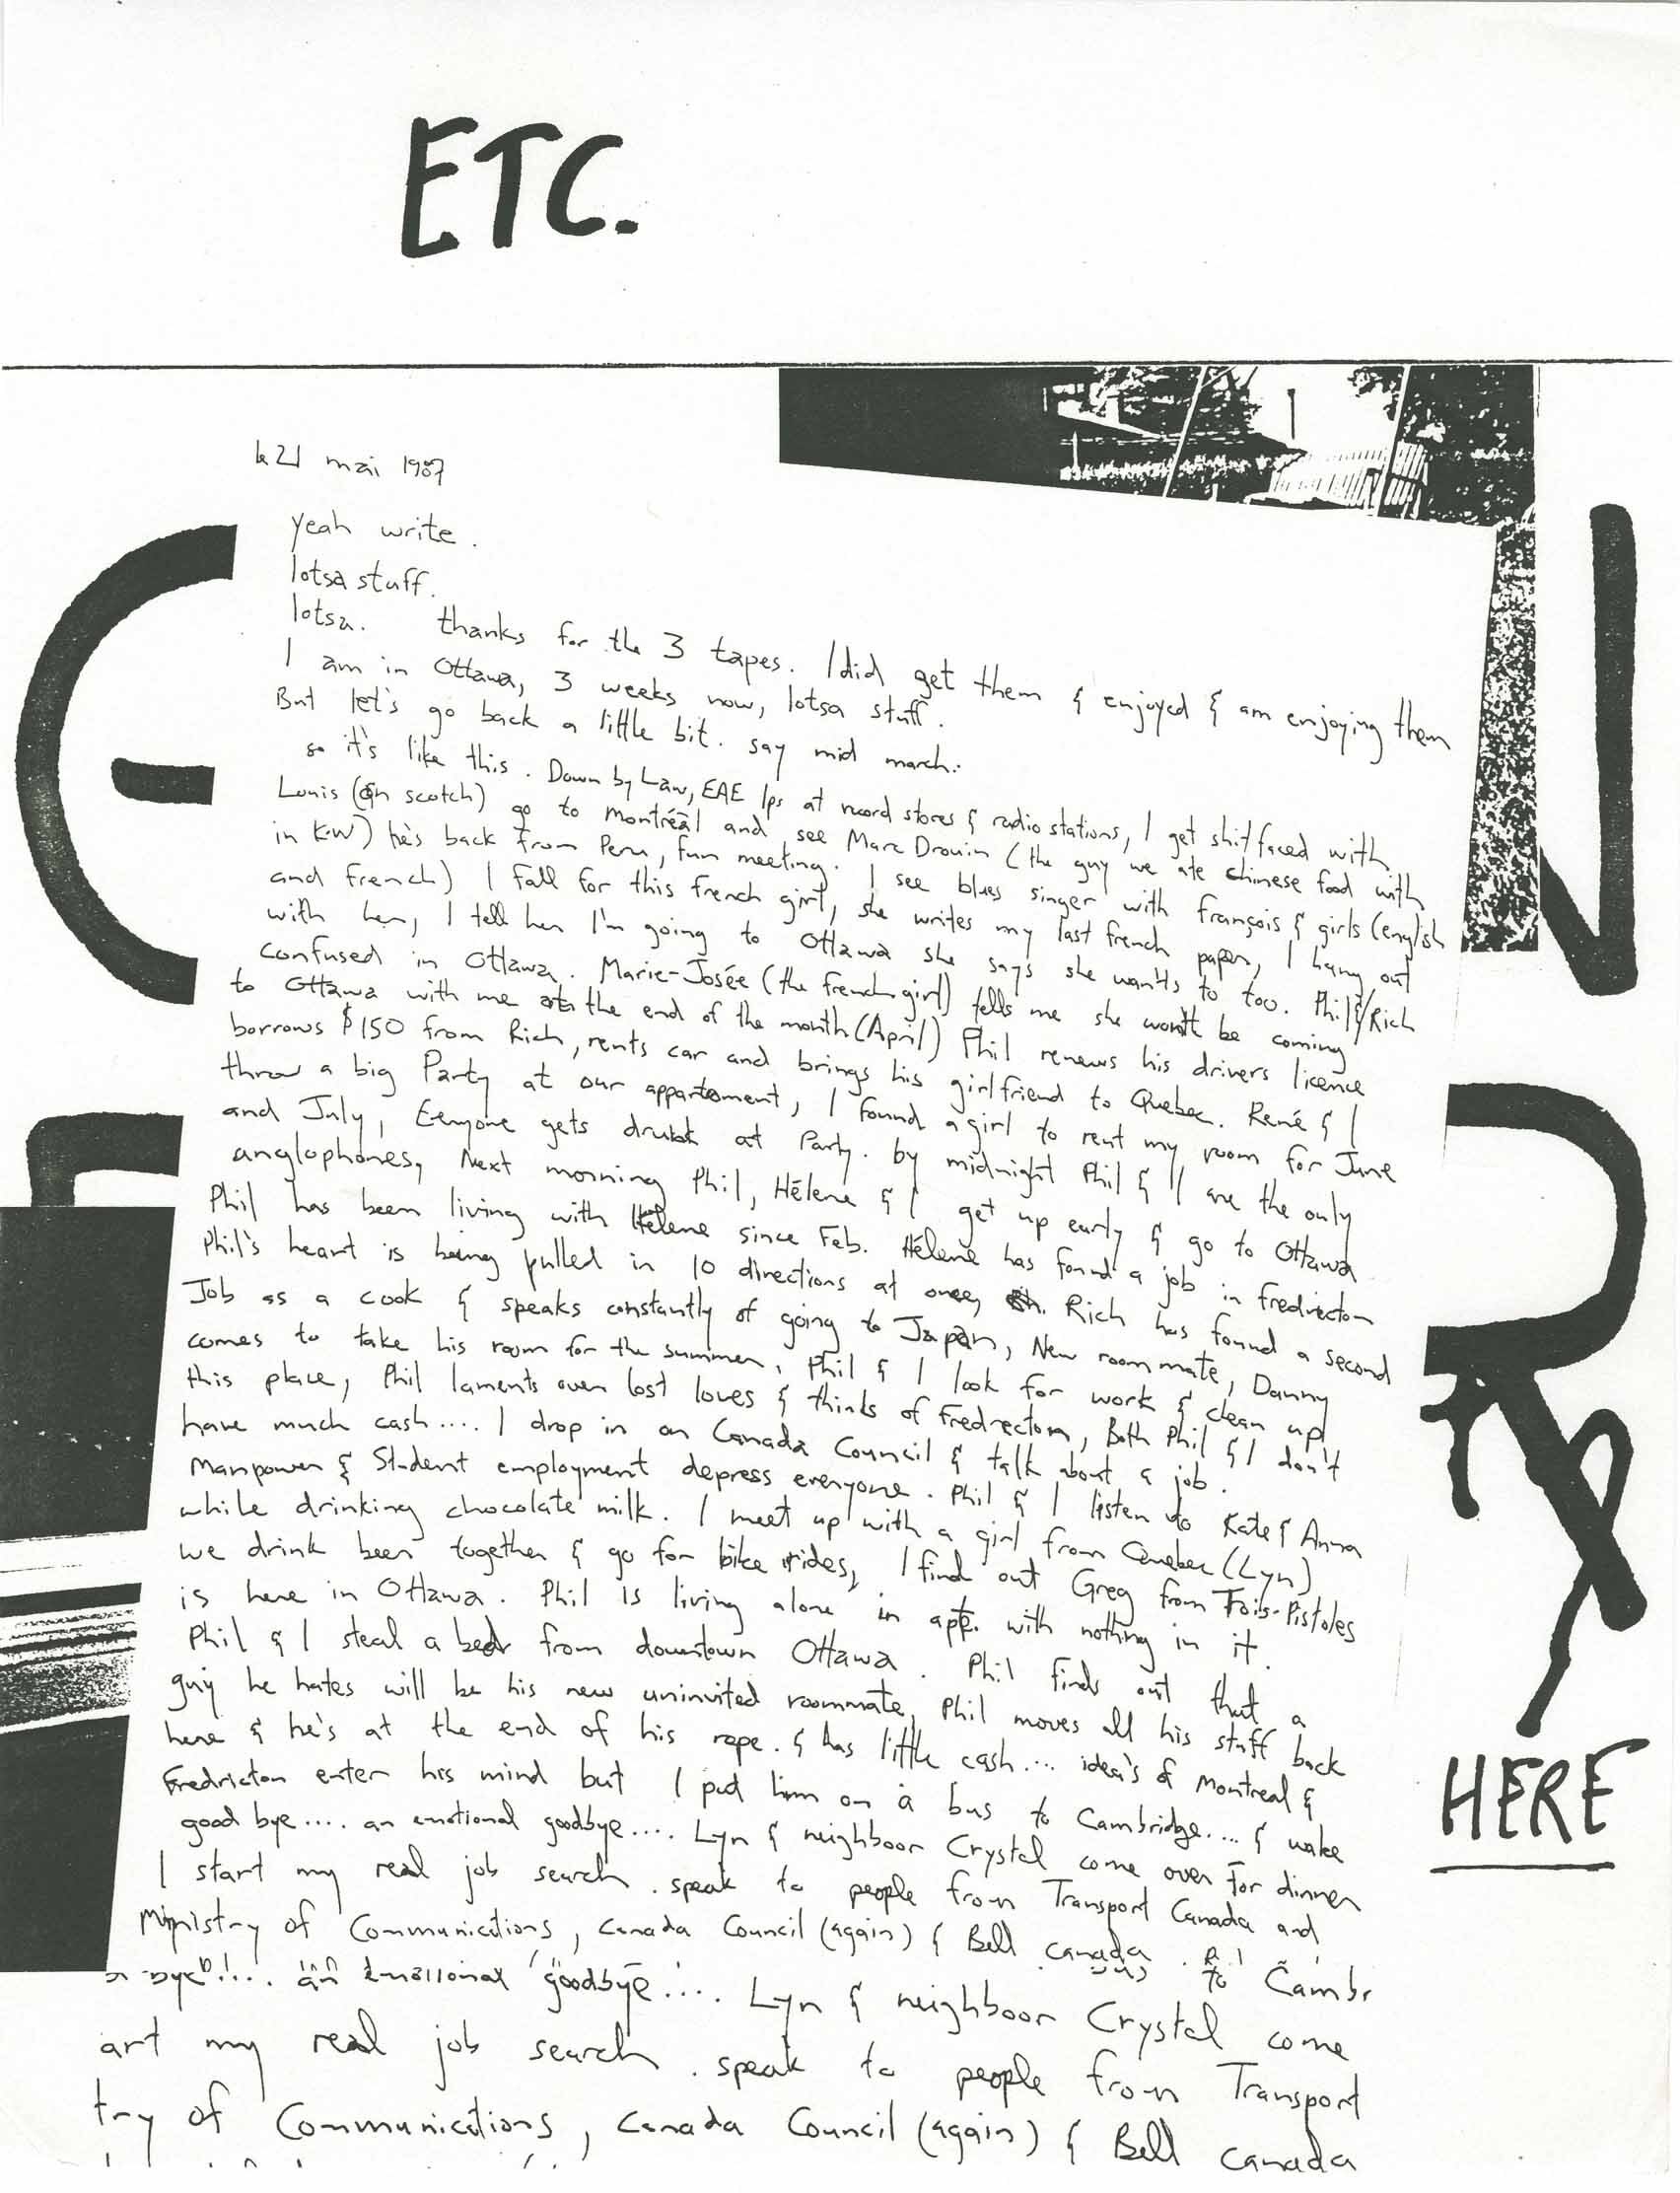 ETC.
le 21 mai 1987
yeah write.
lotsa stuff.
lotsa. thanks for the 3 tapes. I did get them & enjoyed & am enjoying them
I am in Ottawa, 3 weeks now, lotsa stuff.
But let's go back a little bit. say mid march..
so it's like this. Down by Law, EAE lps at record stores & radio stations, I get shitfaced with
Louis (on scotch) go to montréal and see Marc Drouin (the guy we ate chinese food with
in K-W) he's back from Peru, fun meeting. I see blues singer with françois & girls (english
and french) I fall for this french girl, she writes my last french paper, I hang out
with her, I tell her I'm going to Ottawa she says she wants to too. Phil & Rich
confused in Ottawa. Marie-Josée (the french girl) tells me she won't be coming
to Ottawa with me at the end of the month (April) Phil renews his drivers licence
borrows $150 from Rich, rents car and brings his girlfriend to Quebec. René & I
throw a big Party at our appartement, I found a girl to rent my room for June
and July, Eeryone gets drunk at Party. by midnight Phil & I are the only
anglophones, Next morning Phil, Hélene & I get up early & go to Ottawa
Phil has been living with Hélene since Feb. Hélene has found a job in fredricton
Phil's heart is being pulled in 10 directions at once, Rich has found a second
Job as a cook & speaks constantly of going to Japan, New room mate, Danny
comes to take his room for the summer, Phil & I look for work & clean up
this place, Phil laments over lost loves & thinks of Fredrecton, Both Phil & I don't
have much cash.... I drop in on Canada Council & talk about a job.
Manpower & Student employment depress everyone. Phil & I listen to Kate & Anna
while drinking chocolate milk. I meet up with a girl from Quebec (Lyn)
we drink beer together & go for bike rides, I find out Greg from Trois-Pistoles
is here in Ottawa. Phil is living alone in appt. with nothing in it.
Phil & I steal a bed from downtown Ottawa. Phil finds out that a
guy he hates will be his new uninvited roommate, Phil moves all his stuff back
here & he's at the end of his rope. & has little cash.... idea's of Montreal &
Fredricton enter his mind but I put him on a bus to Cambridge.... & wake
good bye.... an emotional goodbye.... Lyn & neighboor Crystal come over for dinner
I start my real job search. speak to people from Transport Canada and
Ministry of Communications, Canada Council (again) & Bell canada.
bye.... an emotional goodbye.... Lyn & neighboor Crystal come
art my real job search. speak to people from Transport
try of Communications, Canada Council (again) & Bell canada
ENTER
HERE